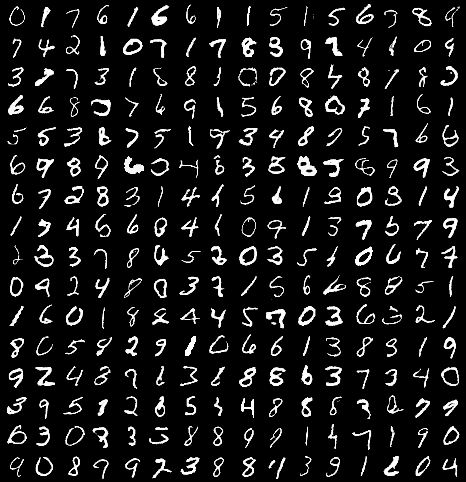 0 1 7 6 1 6 6 1 1 5 1 5 6 3 8 9
7 4 2 1 0 7 1 7 8 3 9 2 4 1 0 9
3 1 7 3 1 8 8 1 0 0 8 4 8 1 8 0
6 6 8 3 7 6 9 1 5 6 8 0 7 1 6 1
5 5 3 8 7 5 1 9 3 4 8 0 5 7 6 6
6 9 8 9 6 0 4 8 3 8 8 5 8 9 9 3
6 7 2 8 3 1 4 1 5 1 1 9 0 8 1 4
1 7 4 5 6 8 4 1 0 9 1 3 7 5 7 9
2 3 3 7 8 4 5 2 0 3 5 1 0 6 7 7
0 9 2 4 8 0 3 7 1 5 6 6 8 8 5 1
1 6 0 1 8 8 4 4 5 7 0 3 6 3 2 1
8 0 5 8 2 9 1 0 6 6 1 3 8 3 1 9
9 2 4 8 7 6 3 8 8 8 6 3 7 3 4 0
3 9 5 1 2 8 5 3 4 8 8 8 3 2 7 9
6 3 0 3 3 5 8 8 9 9 1 4 7 1 9 0
9 0 8 9 9 2 3 8 8 4 3 9 1 2 0 4